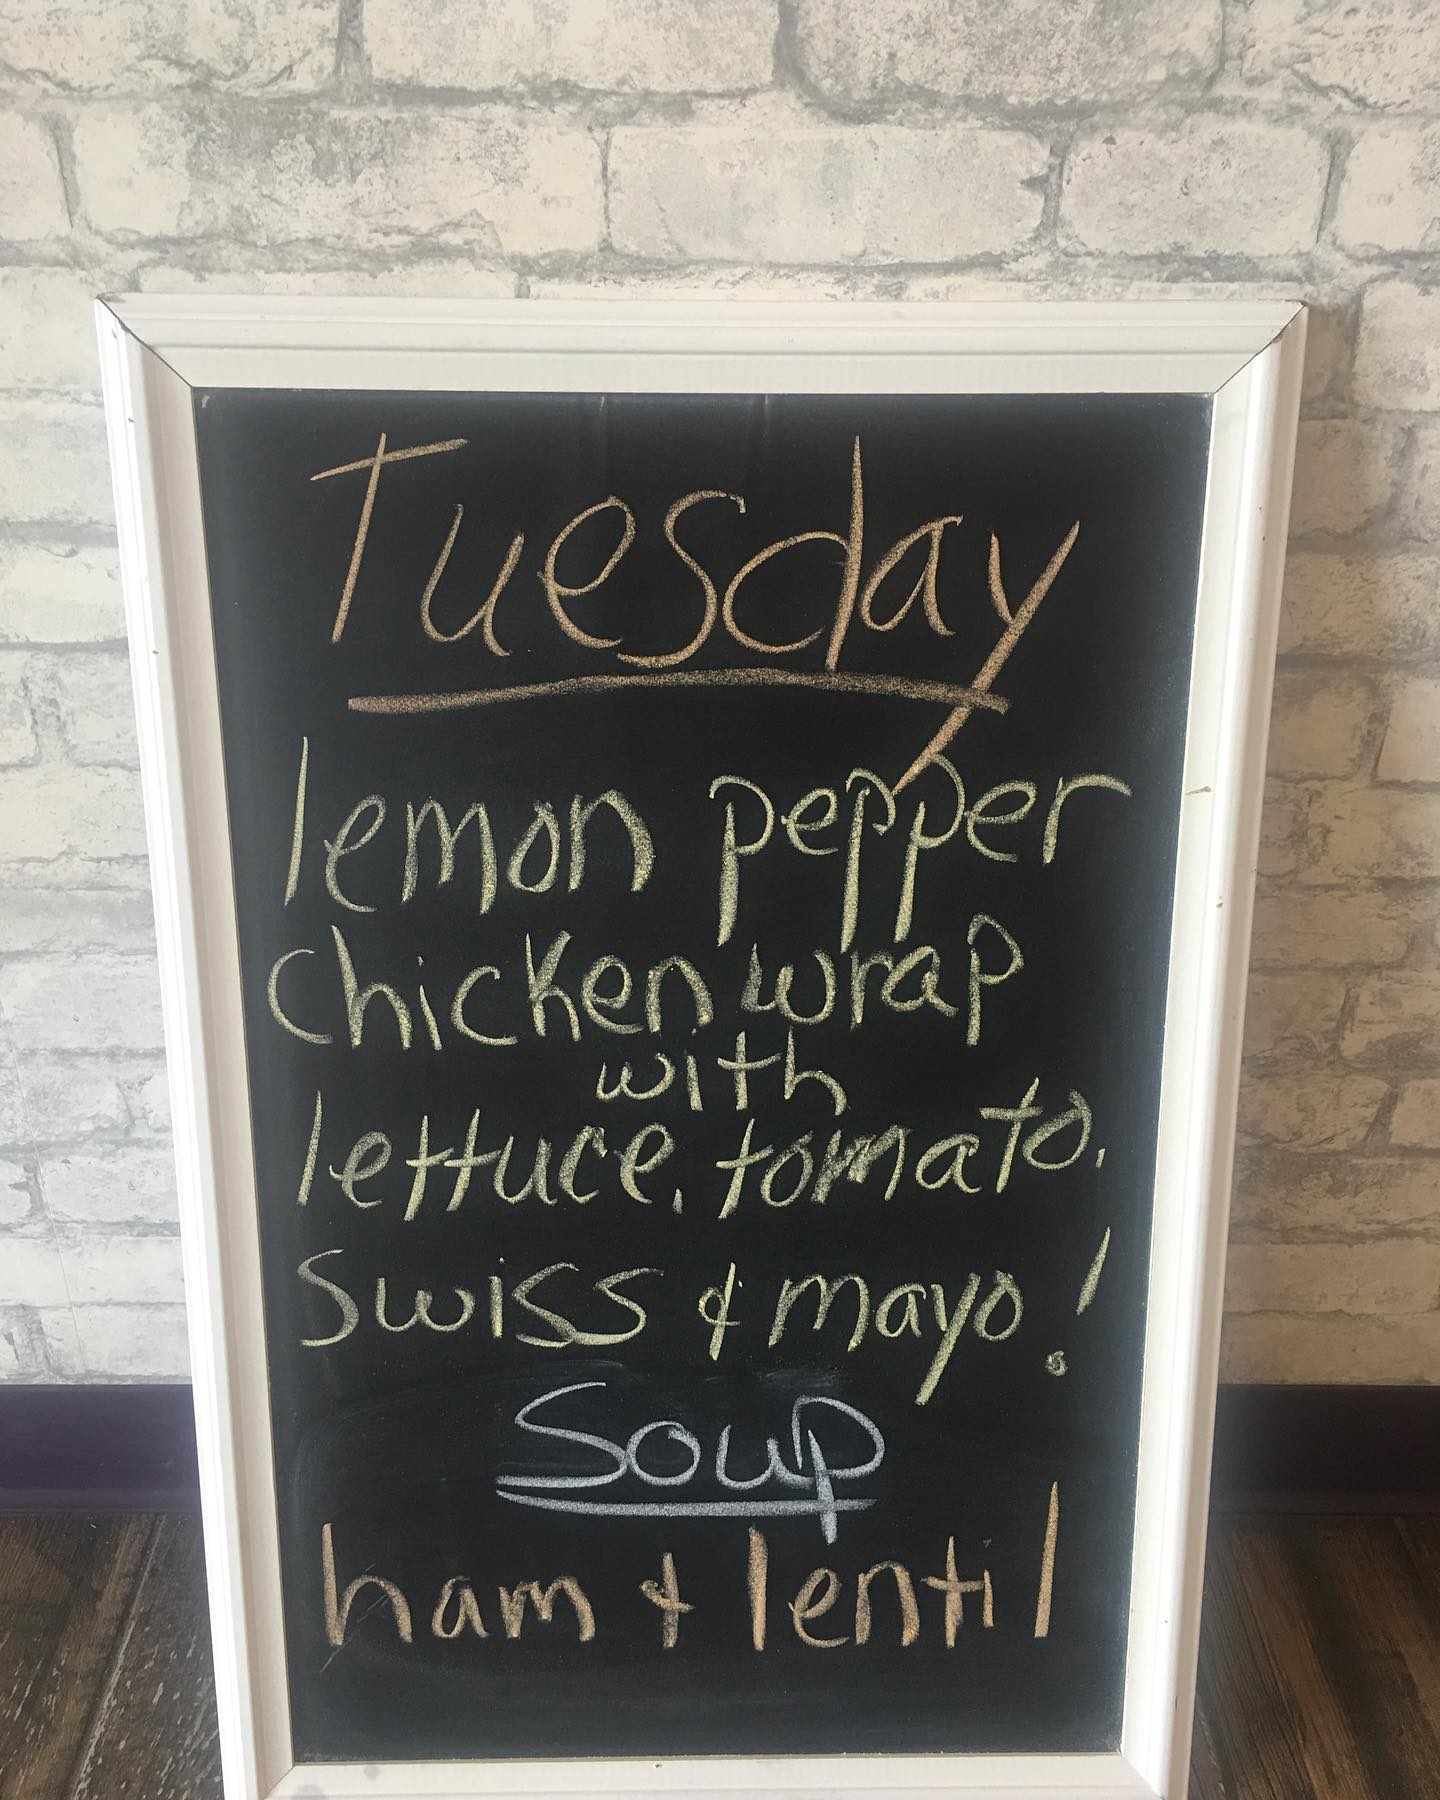 Tuesday
lemon pepper
chicken wrap
with
lettuce, tomato,
Swiss & mayo!
Soup
ham & lentil